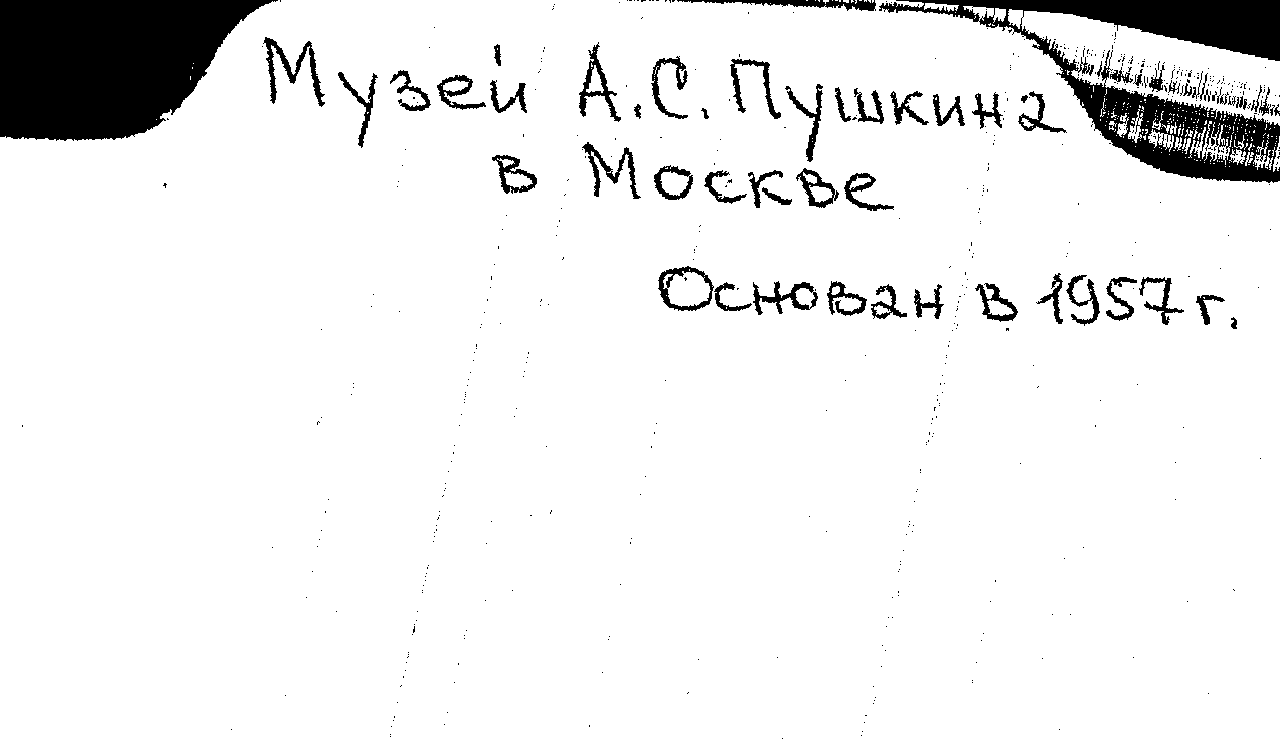 Музей А.С. Пушкина
в Москве
Основан в 1957 г.